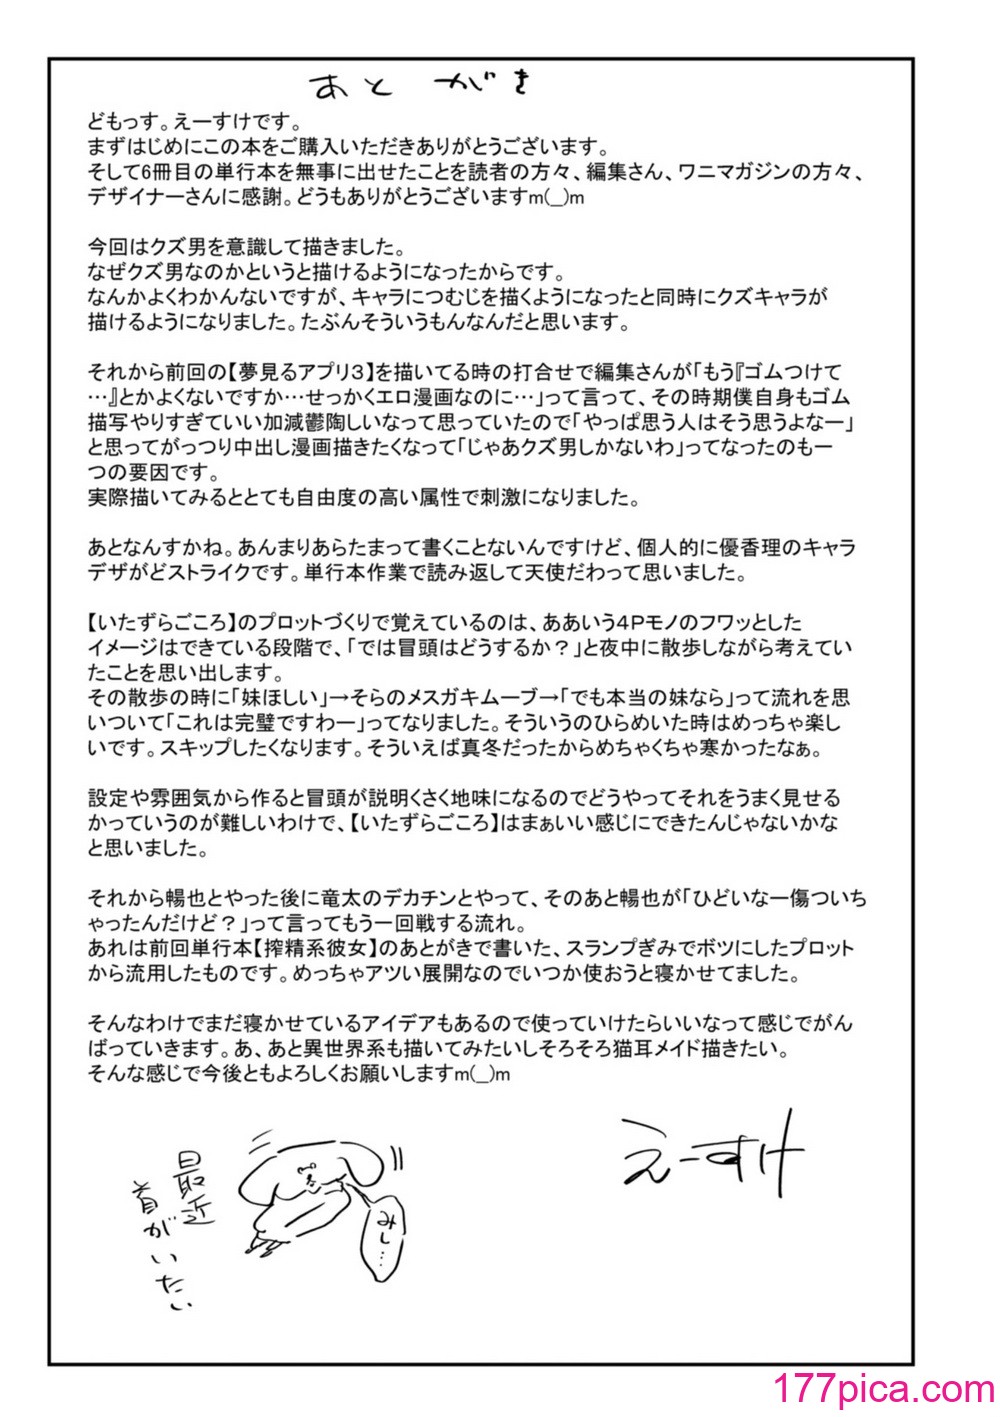 あとがき
どもっす。えーすけです。
まずはじめにこの本をご購入いただきありがとうございます。
そして6冊目の単行本を無事に出せたことを読者の方々、編集さん、ワニマガジンの方々、
デザイナーさんに感謝。どうもありがとうございますm(__)m
今回はクズ男を意識して描きました。
なぜクズ男なのかというと描けるようになったからです。
なんかよくわかんないですが、キャラにつむじを描くようになったと同時にクズキャラが
描けるようになりました。たぶんそういうもんなんだと思います。
それから前回の【夢見るアプリ3】を描いてる時の打合せで編集さんが「もう『ゴムつけて
…』とかよくないですか…せっかくエロ漫画なのに…」って言って、その時期僕自身もゴム
描写やりすぎていい加減鬱陶しいなって思っていたので「やっぱ思う人はそう思うよなー」
と思ってがっつり中出し漫画描きたくなって「じゃあクズ男しかないわ」ってなったのも一
つの要因です。
実際描いてみるととても自由度の高い属性で刺激になりました。
あとなんすかね。あんまりあらたまって書くことないんですけど、個人的に優香理のキャラ
デザがどストライクです。単行本作業で読み返して天使だわって思いました。
【いたずらごころ】のプロットづくりで覚えているのは、ああいう4Pモノのフワッとした
イメージはできている段階で、「では冒頭はどうするか?」と夜中に散歩しながら考えてい
たことを思い出します。
その散歩の時に「妹ほしい」→そらのメスガキムーブ→「でも本当の妹なら」って流れを思
いついて「これは完璧ですわー」ってなりました。そういうのひらめいた時はめっちゃ楽し
いです。スキップしたくなります。そういえば真冬だったからめちゃくちゃ寒かったなぁ。
設定や雰囲気から作ると冒頭が説明くさく地味になるのでどうやってそれをうまく見せる
かっていうのが難しいわけで、【いたずらごころ】はまぁいい感じにできたんじゃないかな
と思いました。
それから暢也とやった後に竜太のデカチンとやって、そのあと暢也が「ひどいなー傷ついち
ゃったんだけど?」って言ってもう一回戦する流れ。
あれは前回単行本【搾精系彼女】のあとがきで書いた、スランプぎみでボツにしたプロット
から流用したものです。めっちゃアツい展開なのでいつか使おうと寝かせてました。
そんなわけでまだ寝かせているアイデアもあるので使っていけたらいいなって感じでがん
ばっていきます。あ、あと異世界系も描いてみたいしそろそろ猫耳メイド描きたい。
そんな感じで今後ともよろしくお願いしますm(__)m
えーすけ
みし…
最近
首がいたい
177pica.com